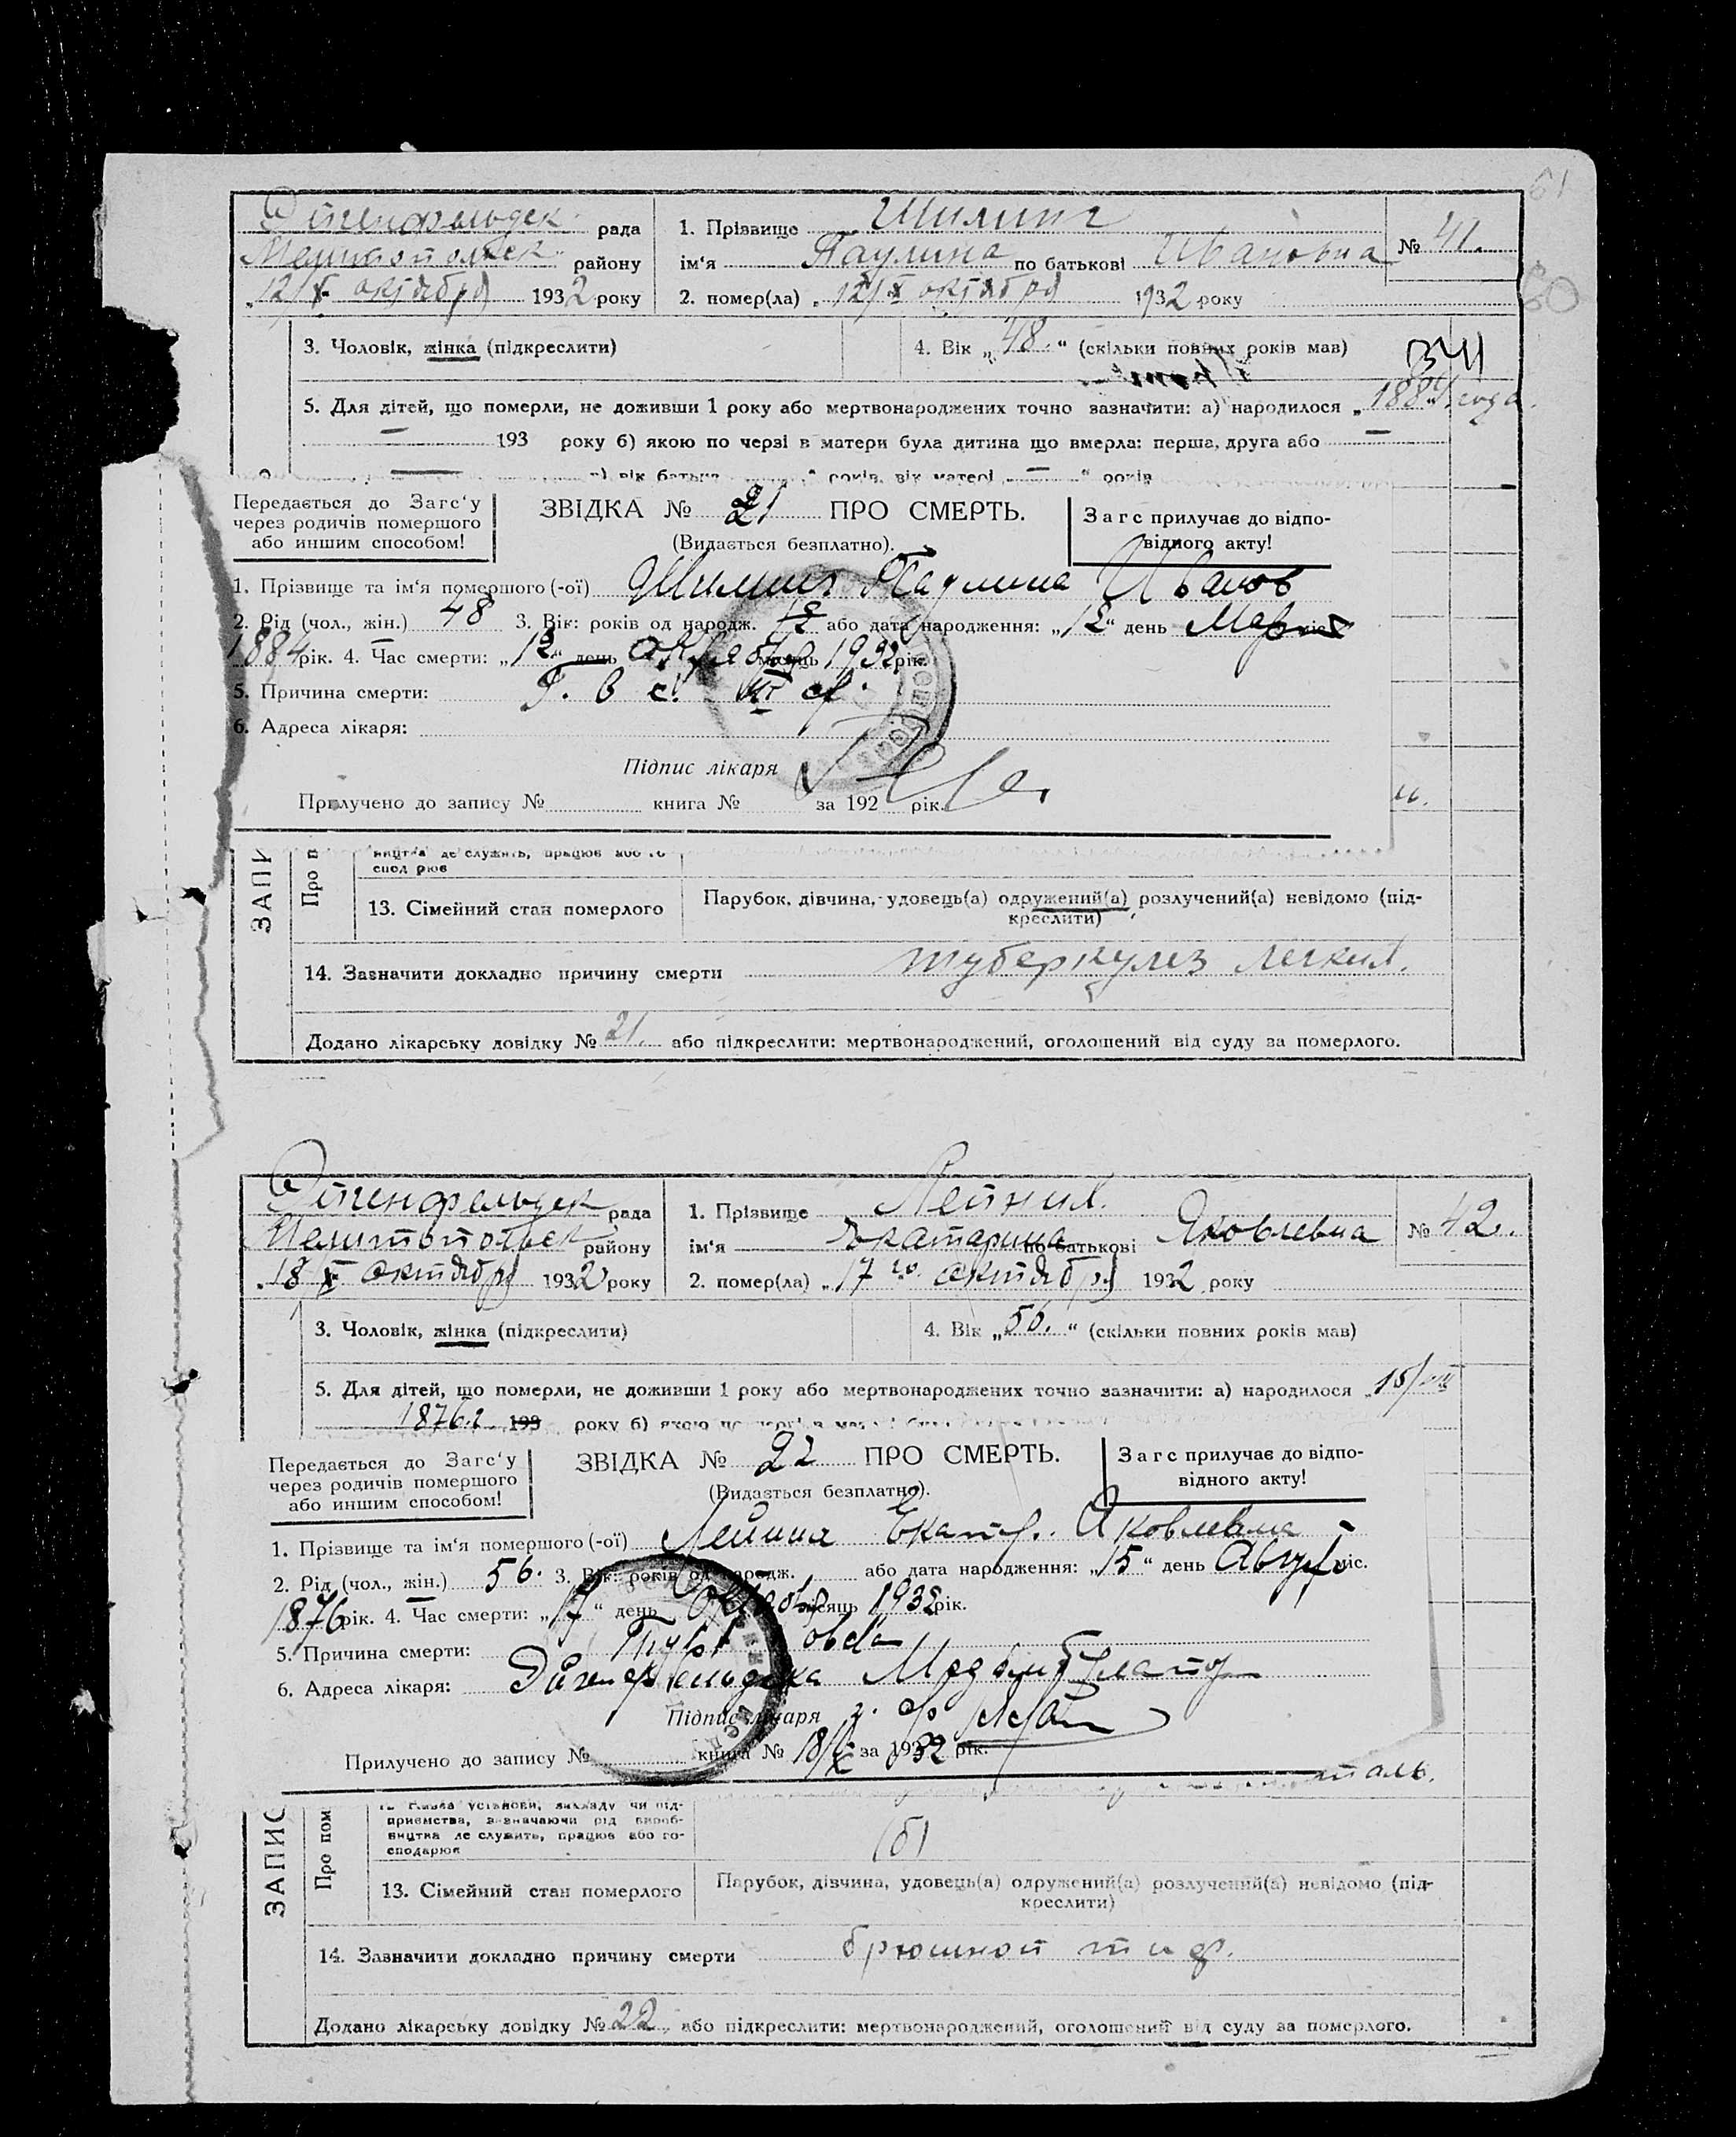 61
Эйгенфельдск рада
Мелитопольск району
„12/X октября 1932 року
1. Прізвище Шилинг
ім'я Паулина по батькові Ивановна
№ 41.
2. помер(ла) „12/X октября 1932 року
60
3. Чоловік, жінка (підкреслити)
4. Вік „48.“ (скільки повних років мав)
341
5. Для дітей, що померли, не доживши 1 року або мертвонароджених точно зазначити: а) народилося „1884 года.
— 193 року б) якою по черзі в матери була дитина що вмерла: перша, друга або —
— в) вік батька “ років, вік матері „ — “ років
Передається до Загс'у
через родичів помершого
або иншим способом!
ЗВІДКА № 21 ПРО СМЕРТЬ.
(Видається безплатно).
Загс прилучає до відпо-
відного акту!
1. Прізвище та ім'я помершого (-ої) Шилинг Паулина Иванов
2. Рід (чол., жін.) 48 3. Вік: років од народж. або дата народження: „12“ день Марта міс.
1884 рік. 4. Час смерти: „12“ день Октября місяць 1932 рік.
5. Причина смерти:
6. Адреса лікаря:
Підпис лікаря
Прилучено до запису № книга № за 192 рік.
ЗАПИ
Про в
ництва де служить, працює або го-
сподарює
13. Сімейний стан померлого
Парубок, дівчина, удовець(а) одружений(а) розлучений(а) невідомо (під-
креслити)
14. Зазначити докладно причину смерти туберкулез легких.
Додано лікарську довідку № 21. або підкреслити: мертвонароджений, оголошений від суду за померлого.
Эйгенфельдск рада
Мелитопольск району
„18/X октября 1932 року
1. Прізвище
ім'я Екатарина по батькові Яковлевна
№ 42.
2. помер(ла) „17го. октября 1932 року
3. Чоловік, жінка (підкреслити)
4. Вік „56.“ (скільки повних років мав)
5. Для дітей, що померли, не доживши 1 року або мертвонароджених точно зазначити: а) народилося „15/VIII
1876 г. 193 року б) якою по черзі в
Передається до Загс'у
через родичів помершого
або иншим способом!
ЗВІДКА № 22 ПРО СМЕРТЬ.
(Видається безплатно).
Загс прилучає до відпо-
відного акту!
1. Прізвище та ім'я помершого (-ої) Екатер. Яковлевна
2. Рід (чол., жін.) 56. 3. Вік: років од народж. або дата народження: „15“ день Август міс.
1876 рік. 4. Час смерти: „17“ день Октябр місяць 1932 рік.
5. Причина смерти:
6. Адреса лікаря: Эйгенфельдска Медамбулатор
Підпис лікаря
Прилучено до запису № книга № 18/X за 1932 рік.
ЗАПИС
Про пом
12. Назва установи, закладу чи під-
приємства, зазначаючи рід вироб-
ництва де служить, працює або го-
сподарює
13. Сімейний стан померлого
Парубок, дівчина, удовець(а) одружений(а) розлучений(а) невідомо (під-
креслити)
14. Зазначити докладно причину смерти брюшной тиф.
Додано лікарську довідку № 22, або підкреслити: мертвонароджений, оголошений від суду за померлого.